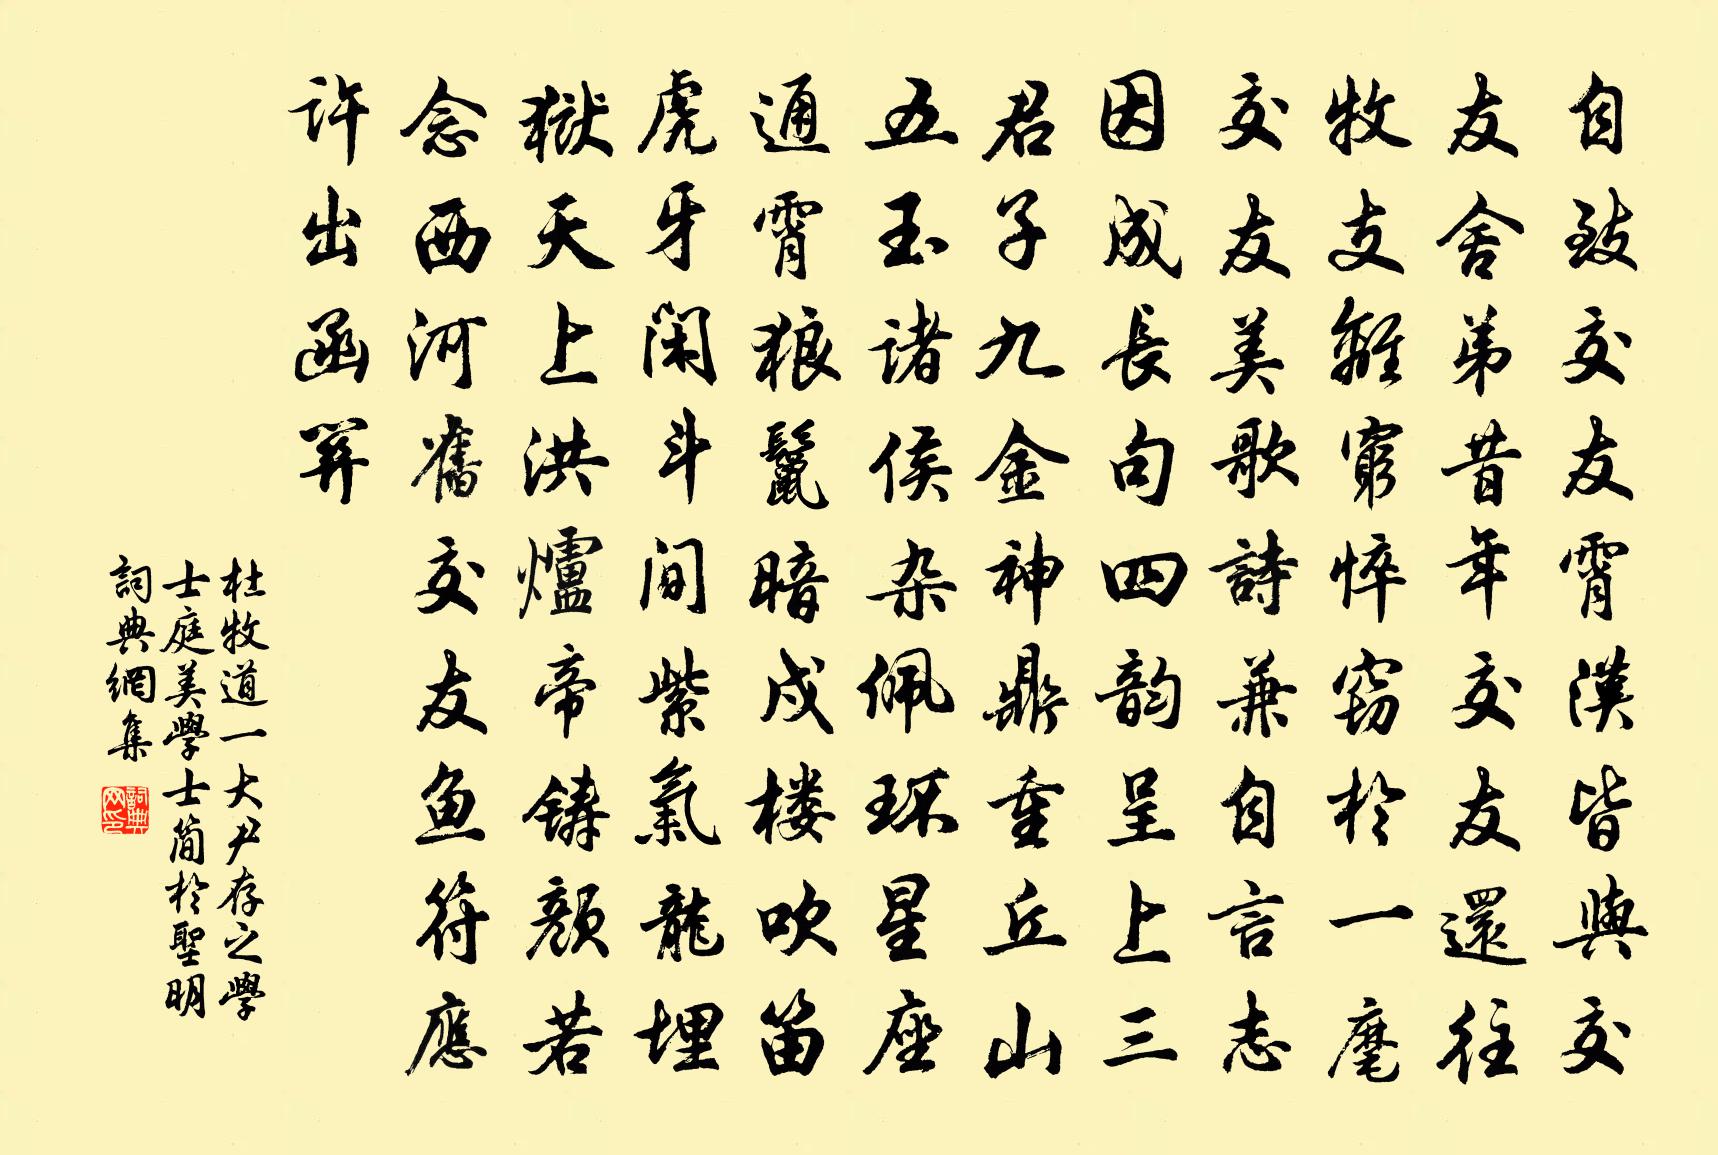 自致交友霄漢皆與交
友舍弟昔年交友還往
牧支離窮悴窃於一麾
交友美歌詩兼自言志
因成長句四韵呈上三
君子九金神鼎重丘山
五玉诸侯杂佩环星座
通霄狼鬣暗戍楼吹笛
虎牙閑斗間紫氣龍埋
獄天上洪爐帝鑄顔若
念西河舊交友魚符應
許出函關
杜牧道一大尹存之學
士庭美學士簡於聖明
詞典網集
詞典网印